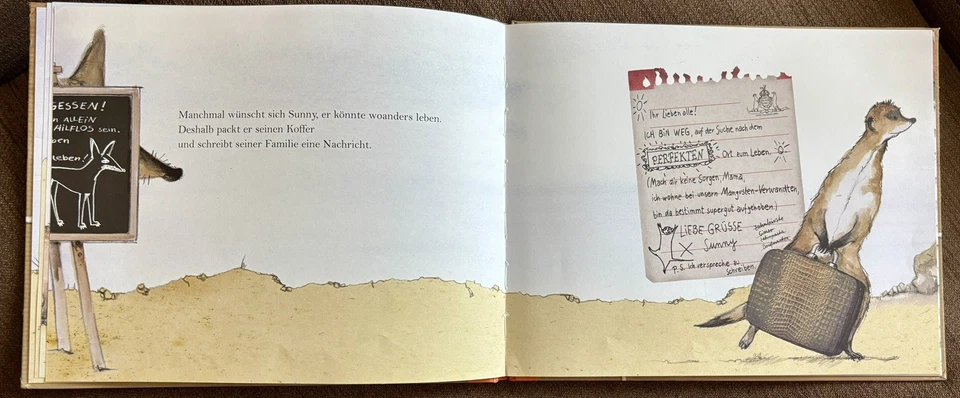 GESSEN!
ALLEIN
HILFLOS sein.
Leben!
Manchmal wünscht sich Sunny, er könnte woanders leben.
Deshalb packt er seinen Koffer
und schreibt seiner Familie eine Nachricht.
Ihr Lieben alle!
ICH BIN WEG, auf der Suche nach dem
PERFEKTEN Ort zum Leben.
(Mach dir keine Sorgen, Mama,
ich wohne bei unsern Mangusten-Verwandten,
bin da bestimmt supergut aufgehoben.)
LIEBE GRÜSSE
X Sunny
P.S. Ich verspreche zu
schreiben.